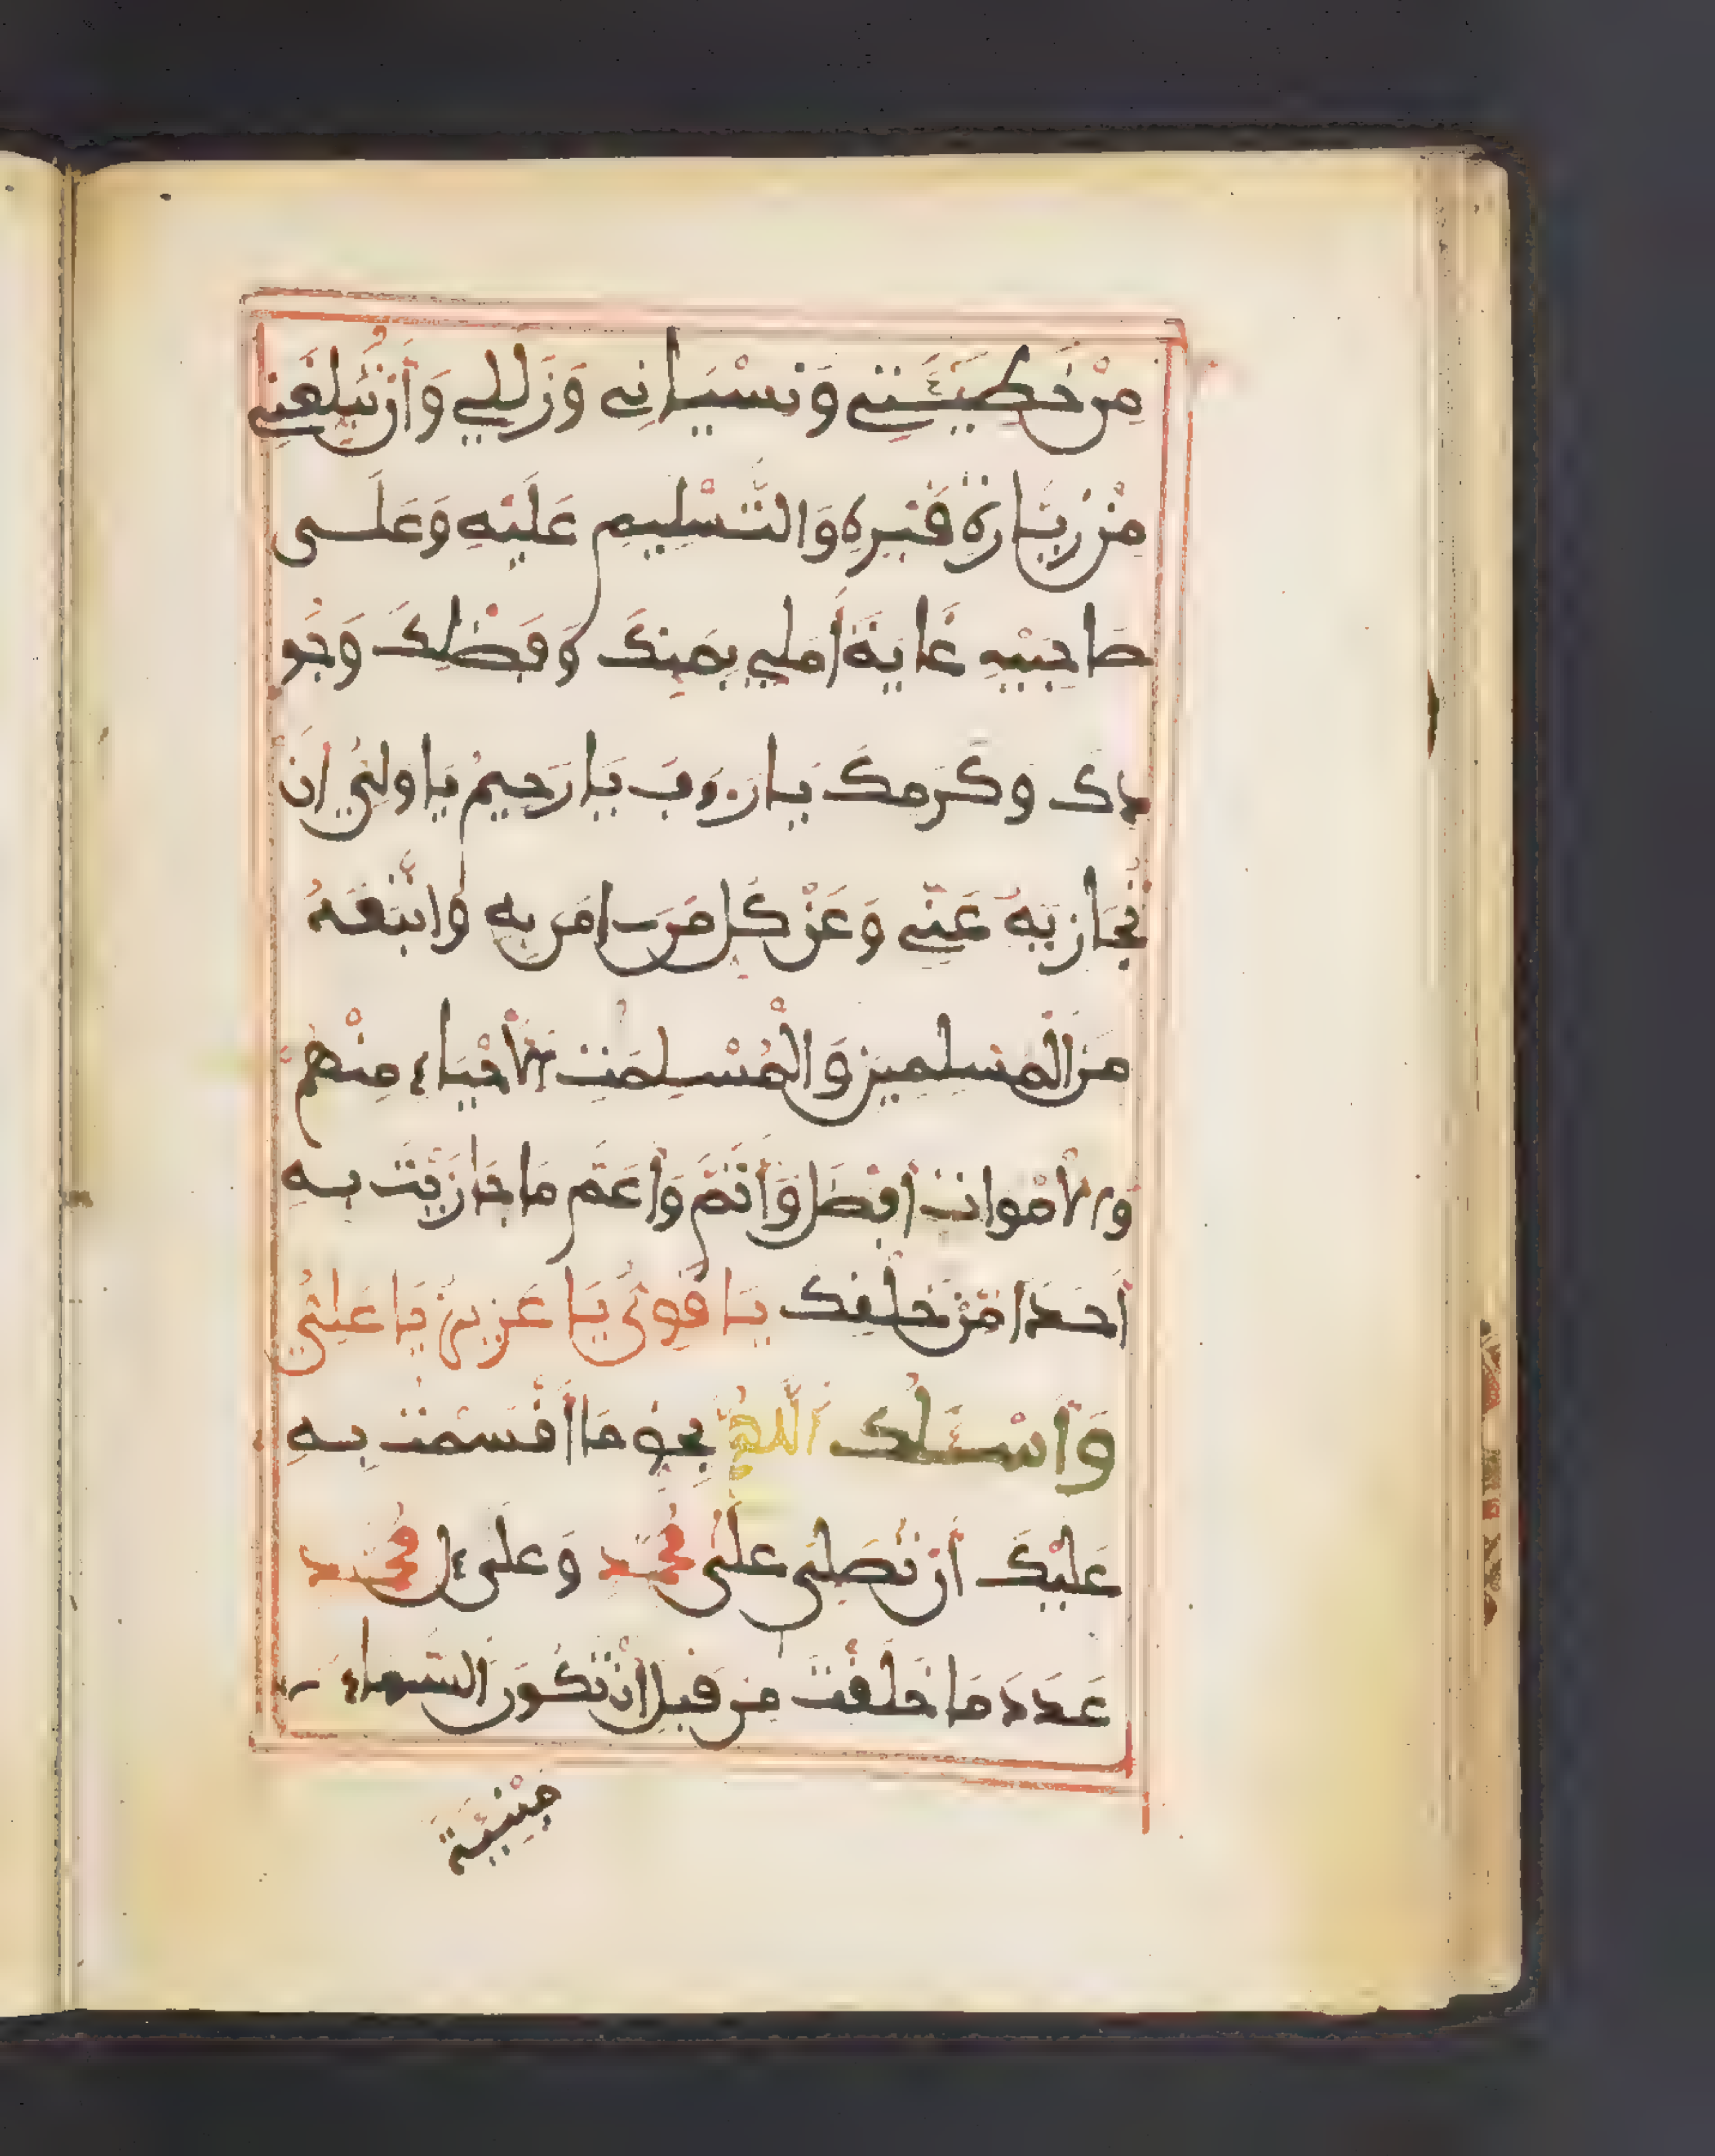 مِنْ خَطِيـَٔتِے وَنِسْيَانِے وَزَلَلِے وَأَن تُبَلِّغَنِے
مِن زِيَارَةِ قَبْرِهِ وَالتَّسْلِيمِ عَلَيْهِ وَعَلَى
صَاحِبَيْهِ غَايَةَ أَمَلِے بِمَنِّكَ وَفَضْلِكَ وَجُو
دِكَ وَكَرَمِكَ يَا رَءُوفُ يَا رَحِيمُ يَا وَلِيُّ أَن
تُجَازِيَهُ عَنِّے وَعَن كُلِّ مَنَ امَنَ بِهِ وَاتَّبَعَهُ
مِنَ الْمُسْلِمِينَ وَالْمُسْلِمَتِ الْأَحْيَاءِ مِنْهُمْ
وَالْأَمْوَاتِ أَفْضَلَ وَأَتَمَّ وَأَعَمَّ مَا جَازَيْتَ بِهِ
أَحَدًا مِّنْ خَلْقِكَ يَا قَوِيُّ يَا عَزِيزُ يَا عَلِيُّ
وَأَسْـَٔلُكَ اَللَّهُمَّ بِحَقِّ مَا أَقْسَمْتُ بِهِ
عَلَيْكَ أَن تُصَلِّيَ عَلَى مُحَمَّدٍ وَعَلَى ءَالِ مُحَمَّدٍ
عَدَدَ مَا خَلَقْتَ مِن قَبْلِ أَن تَكُونَ السَّمَاءُ
مَبْنِيَّةً